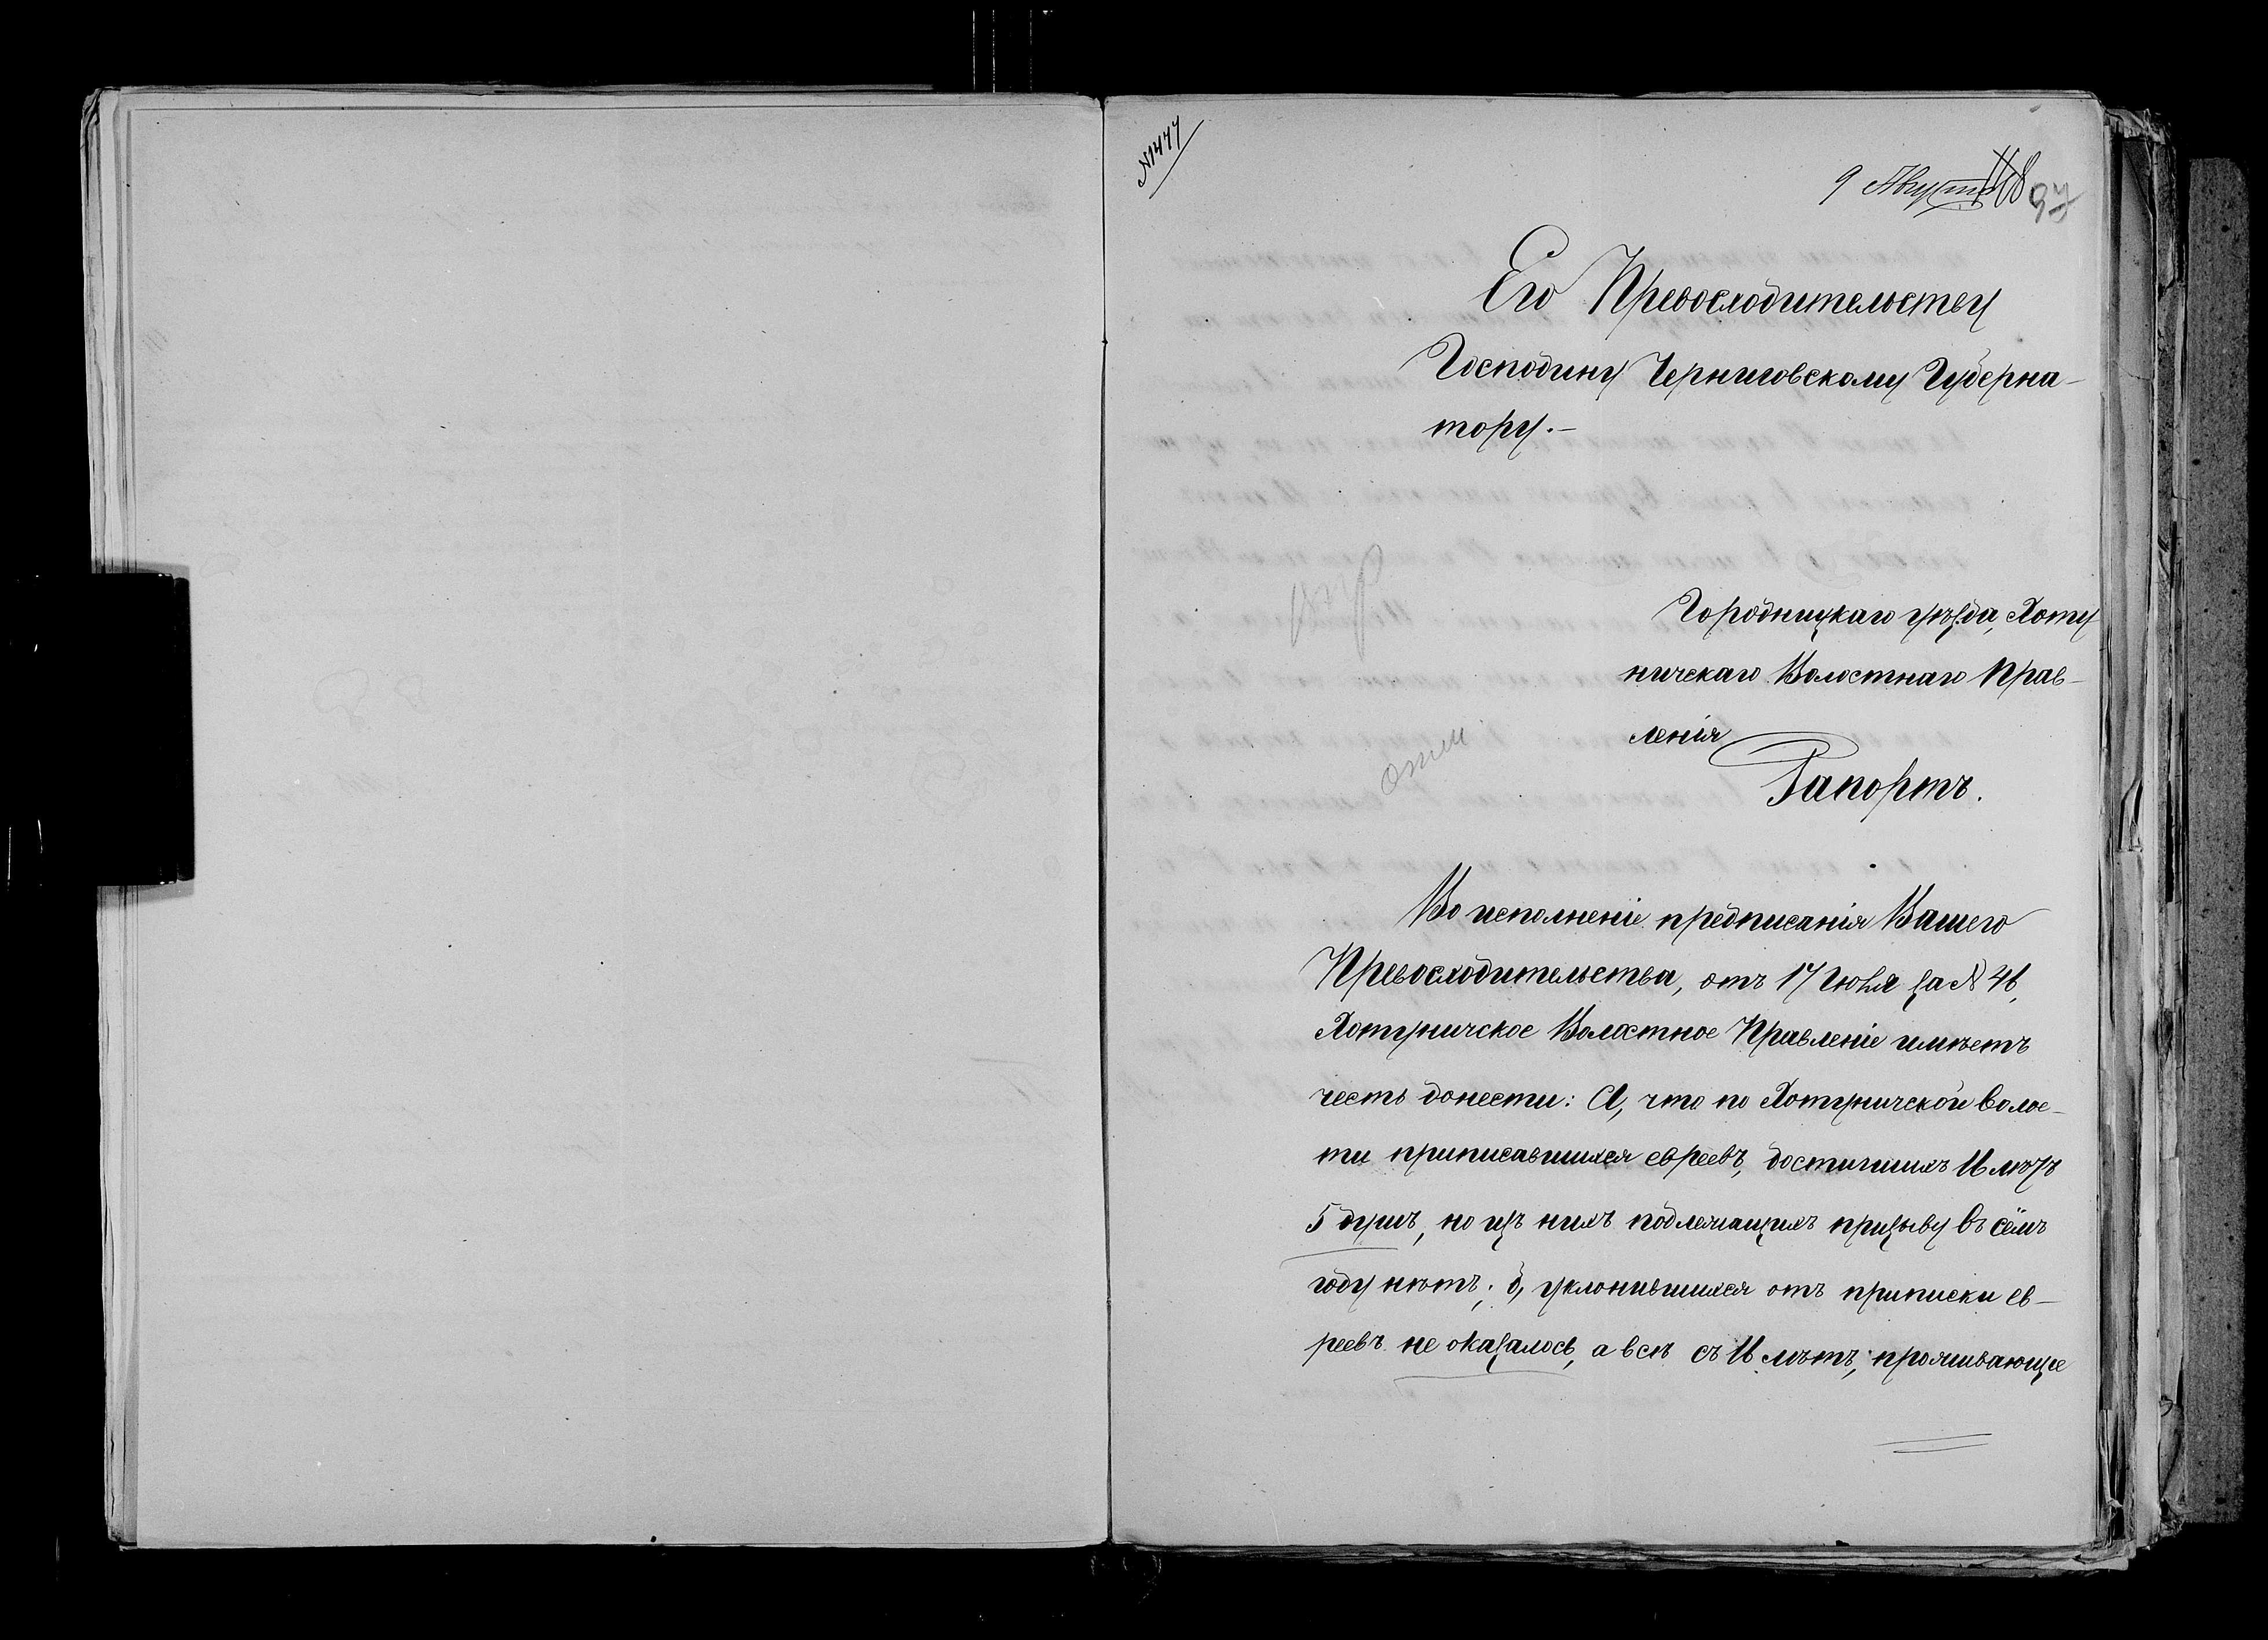 №1477
9 Августа 118 97
Его Превосходительству
Господину Черниговскому Губерна-
тору.-
Городницкаго уѣзда, Хоту
ничскаго Волостнаго Прав-
ленія
Рапортъ.
Во исполненіе предписанія Вашего
Превосходительства, отъ 17 Іюля за №
Хотуничское Волостное Правленіе имѣетъ
честь донести: а, что по Хотуничской Волос-
ти приписавшихся евреевъ, достигшихъ 16 лѣтъ
5 душъ, но изъ нихъ подлежащихъ призыву въ семъ
году нѣтъ; б, уклонившихся отъ приписки ев-
реевъ не оказалось, а всѣ съ 16 лѣтъ, проживающіе